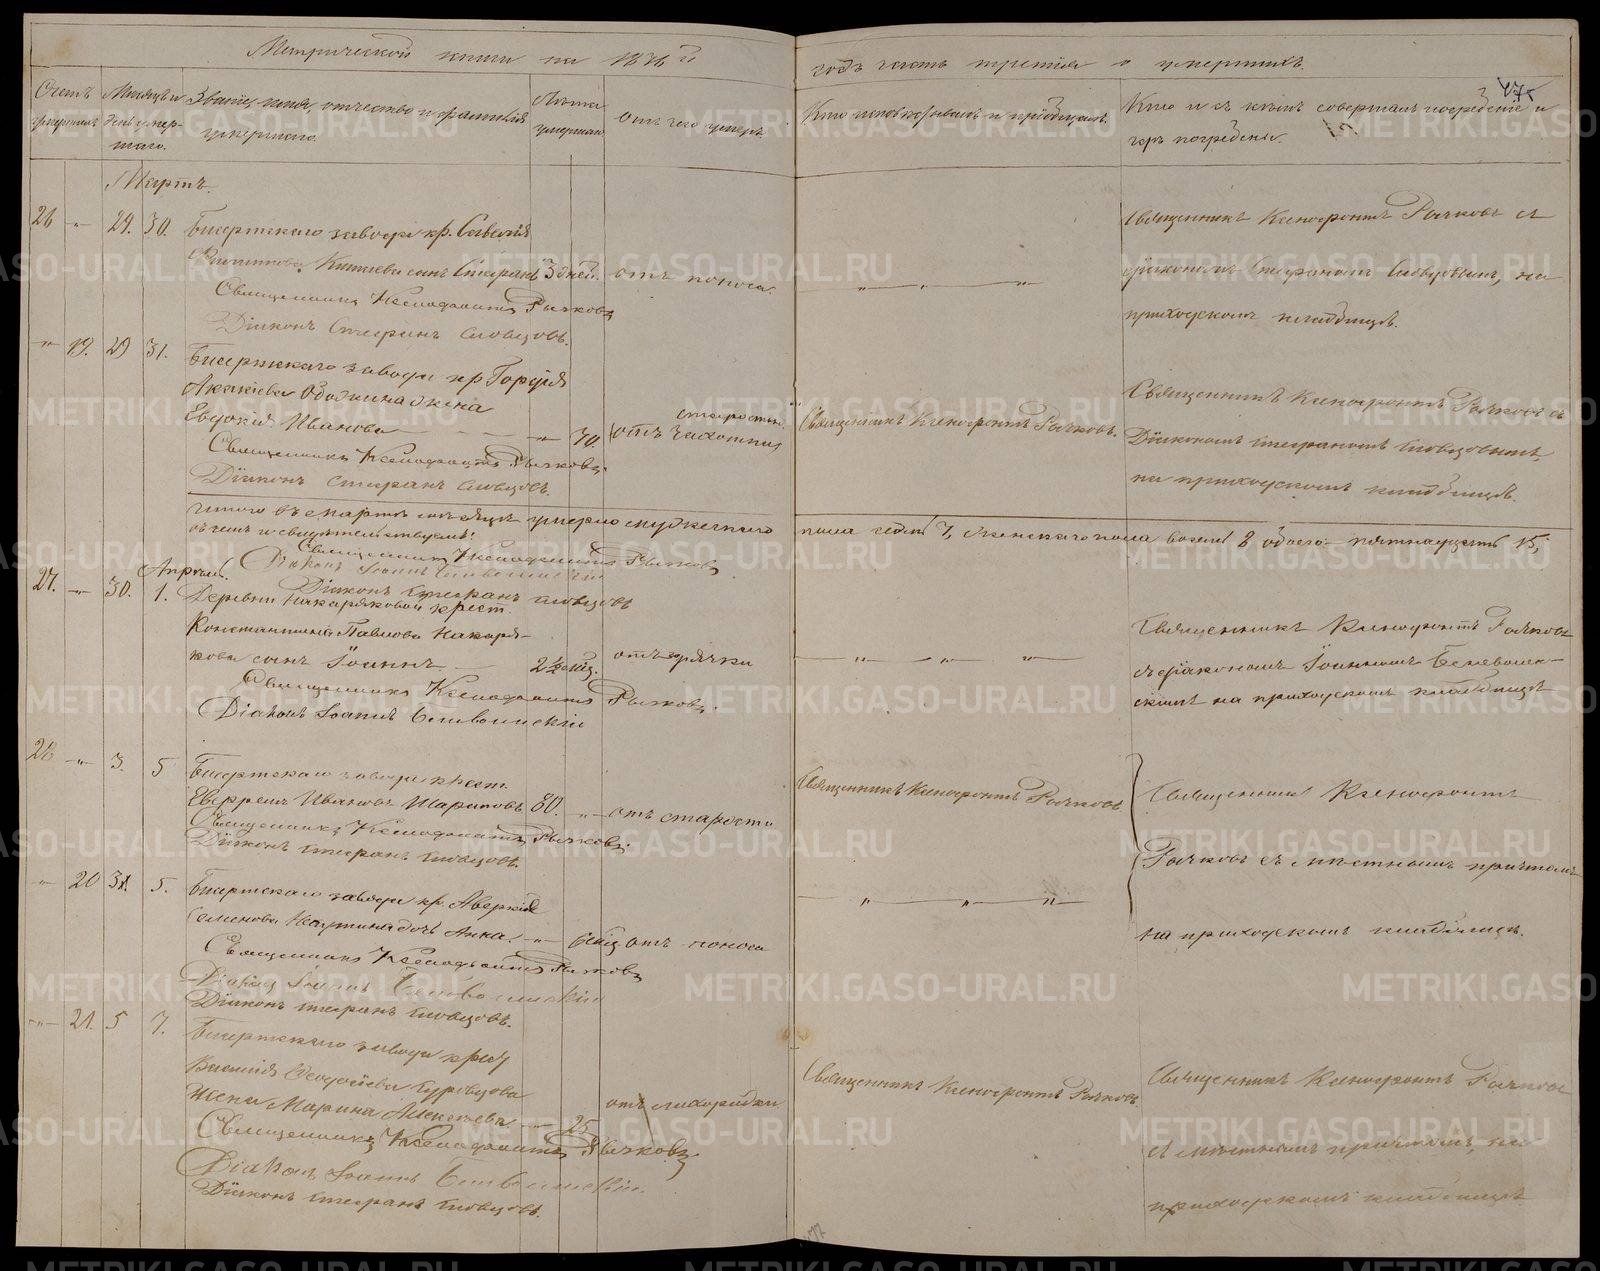 Метрической книги на 1878й
годъ часть третія о умершихъ.
Счетъ умершихъ
Месяцъ и день умершаго.
Званіе, имя, отчество и фамилія умершаго.
Лѣта умершаго
Отъ чего умеръ
Кто исповѣдывалъ и пріобщалъ.
Кто и съ кѣмъ совершалъ погребеніе и гдѣ погребены.
Мартъ.
26 " 29. 30. Бисертскаго завода кр. Савелія
Филиппова сынъ Стефанъ 3 дней. отъ поноса.
Священникъ Ксенофонтъ Рычковъ
Діаконъ Стефанъ Словцовъ.
Священникъ Ксенофонтъ Рычковъ съ
діакономъ Стефаномъ Словцовымъ, на
приходскомъ кладбищѣ.
" 19. 29 31. Бисертскаго завода кр Гордія
Акакіева жена
Евдокія Иванова " 70 отъ чахотки
Священникъ Ксенофонтъ Рычковъ.
Діаконъ Стефанъ Словцовъ.
Священникъ Ксенофонтъ Рычковъ.
Священникъ Ксенофонтъ Рычковъ съ
Діакономъ Стефаномъ Словцовымъ,
на приходскомъ кладбищѣ.
Итого въ мартѣ мѣсяцѣ умерло мужескаго
пола седмь 7, женскаго пола восемь 8 обоего пятнадцать 15,
въ чемъ и свидѣтельствуемъ:
Священникъ Ксенофонтъ Рычковъ
Діаконъ Іоаннъ
Діаконъ Стефанъ Словцовъ
Апрѣль.
27. " 30. 1. Деревни Накаряковой крест.
Константина Павлова Накаря-
кова сынъ Іоаннъ 2½ мѣс. отъ горячки
Священникъ Ксенофонтъ Рычковъ.
Діаконъ Іоаннъ
Священникъ Ксенофонтъ Рычковъ
съ діакономъ Іоанномъ
на приходскомъ кладбищѣ
28 " 3. 5 Бисертскаго завода крест.
Евфремъ Ивановъ Шараповъ 80. " отъ старости
Священникъ Ксенофонтъ Рычковъ.
Діаконъ Стефанъ Словцовъ.
Священникъ Ксенофонтъ Рычковъ
Священникъ Ксенофонтъ
Рычковъ съ мѣстнымъ причтомъ
на приходскомъ кладбищѣ.
" 20 31. 5. Бисертскаго завода кр. Аверкія
Семенова дочь Анна. " 6 мѣс отъ поноса
Священникъ Ксенофонтъ Рычковъ
Діаконъ Іоаннъ
Діаконъ Стефанъ Словцовъ.
" 21. 5 7. Бисертскаго завода крест
Василія Ѳеодосіева
жена Марина Алексѣева " 25 отъ лихорадки
Священникъ Ксенофонтъ Рычковъ
Діаконъ Іоаннъ
Діаконъ Стефанъ Словцовъ.
Священникъ Ксенофонтъ Рычковъ.
Священникъ Ксенофонтъ Рычковъ
съ мѣстнымъ причтомъ, на
приходскомъ кладбищѣ
METRIKI.GASO-URAL.RU